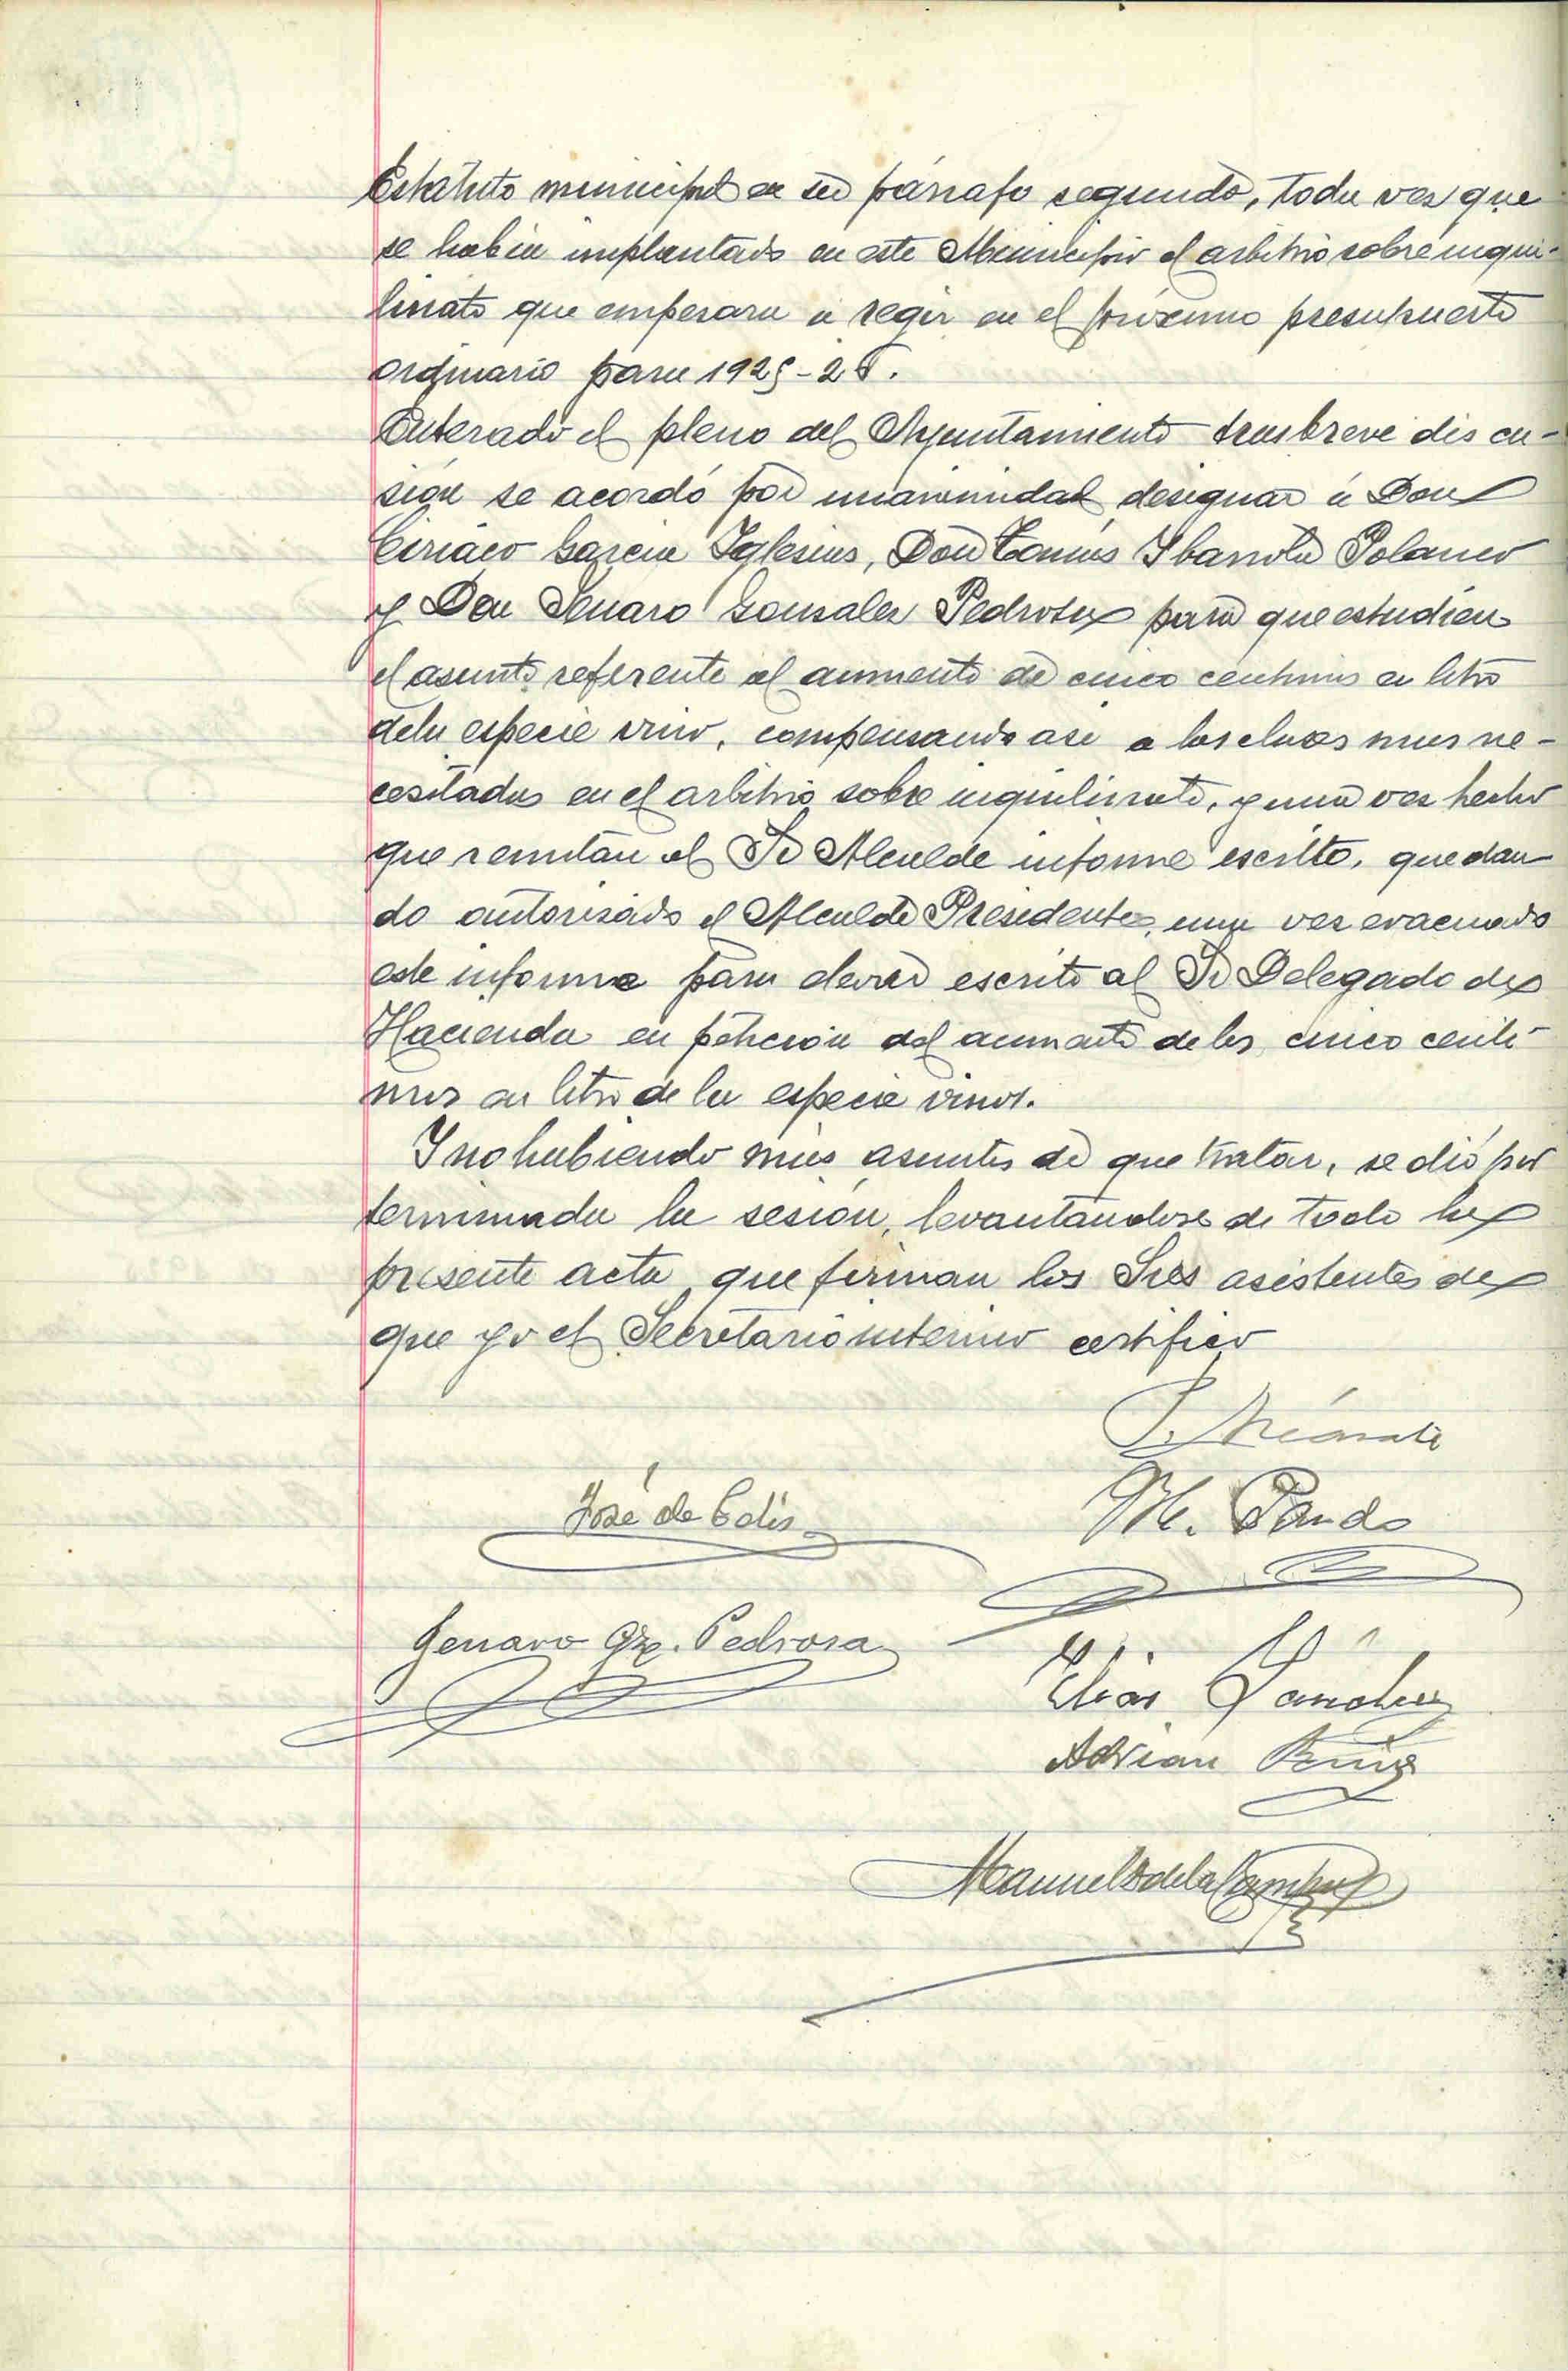 Estatuto municipal en su párrafo segundo, toda vez que
se habia implantado en este Municipio el arbitrio sobre inqui-
linato que empesara a regir en el próximo presupuesto
ordinario para 1925-26.
Enterado el pleno del Ayuntamiento tras breve discu-
sión se acordó por unanimidad designar á Don
Ciriaco Garcia Iglesias, Don Tomás Ibarrola Polanco
y Don Jenaro Gonsales Pedrosa para que estudien
el asunto referente al aumento de cinco centimos en litro
dela especie vino, compensando asi a las clases mas ne-
cesitadas en el arbitrio sobre inquilinato, y una ves hecho
que remitan al Sr Alcalde informe escrito, quedan
do autorisado el Alcalde Presidente, una ves evacuado
este informe para elevar escrito al Sr Delegado de
Hacienda en petición del aumento de los cinco centi-
mos en litro de la especie vinos.
Y no habiendo más asuntos de que tratar, se dió por
terminada la sesión, levantandose de todo la
presente acta que firman los Sres asistentes de
que yo el Secretario interino certifico
José de Celis
M. Pando
Genaro Gz. Pedrosa
Elias Sanchez
Adrian Ruiz
Manuel de la Campa